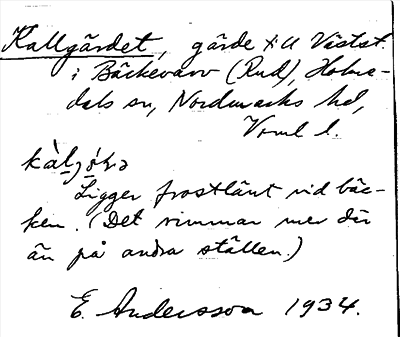 Kallgärdet, gärde till Västst.
i Bäckevarv (Rud), Holme-
dals sn, Nordmarks hd,
Vrml l.
Ligger frostlänt vid bäc-
ken. (Det rimmar mer där
än på andra ställen.)
E. Andersson 1934.